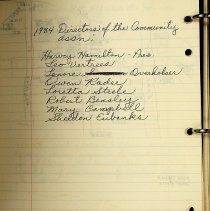 1984 Directors of the Community
assn:
Harvey Hamilton - Pres.
Leo Vertrees
Lenore Overholser
Rader
Loretta Steele
Robert Beasley
Mary Campbell
Sheldon Eubanks